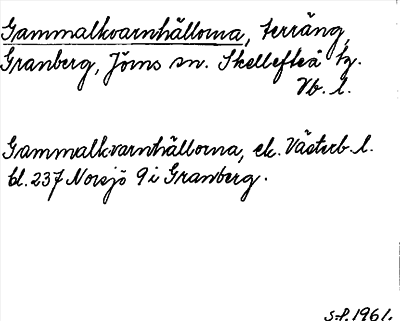 Gammalkvarnhällorna, terräng,
Granberg, Jörns sn. Skellefteå tg.
Vb. l.
Gammalkvarnhällorna, ek. Västerb. l.
bl. 237 Norsjö 9 i Granberg.
1961.